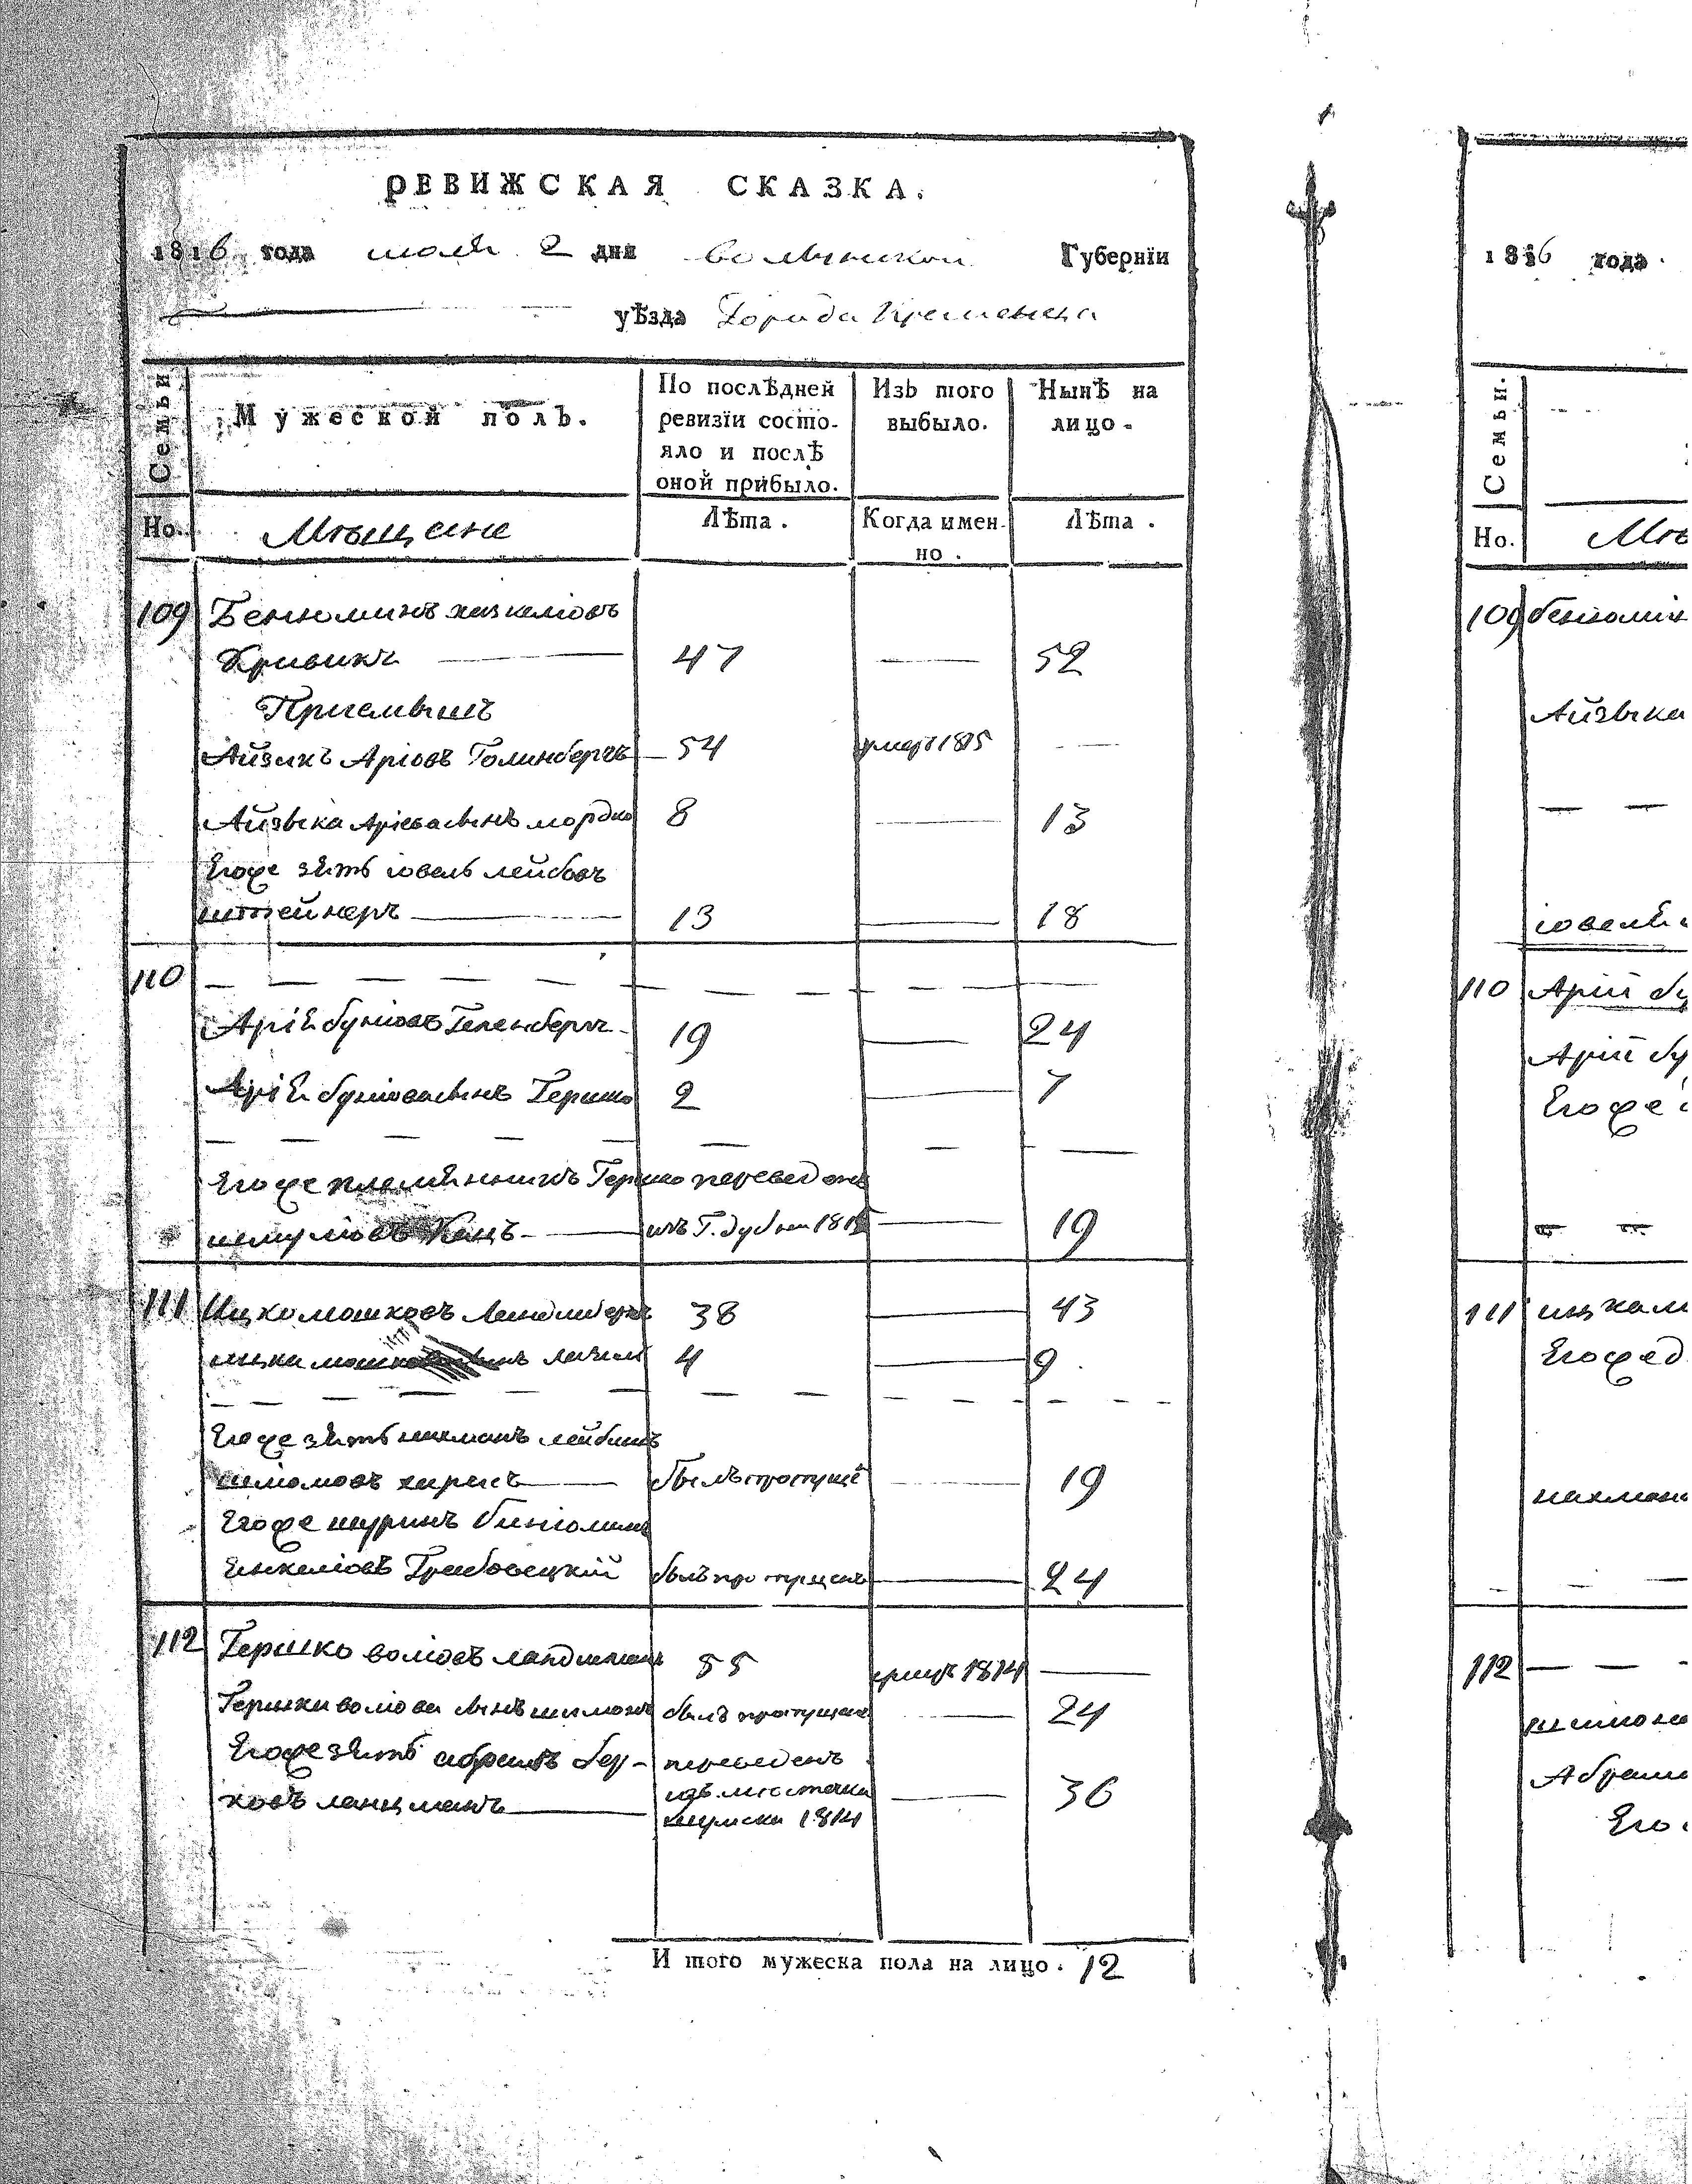 РЕВИЖСКАЯ СКАЗКА.
1816 года июля 2 дня волынской Губернїи
уѣзда Города Кременца
Семьи
Мужеской полъ.
По послѣдней ревизїи состо-
яло и послѣ оной прибыло.
Изъ того выбыло.
Нынѣ на лицо.
Но. Мѣщане Лѣта. Когда имен-
но. Лѣта.
109 Бенюминъ хазкелiовъ
Кривикъ 47 — 52
Приемышъ
Айзикъ Арiовъ Голинбергъ 54 умеръ 1815 —
Айзька Арiева сынъ мордко 8 — 13
Его же зять iовель лейбовъ
штейнеръ 13 — 18
110 — — — — —
Арiй бунiовъ Геленбергъ 19 — 24
Арiй бунiова сынъ Гершко 2 — 7
— — — — —
Его же племянникъ Гершко переведенъ
шмулiовъ Кацъ изъ Г. дубна 181 — 19
111 Ицко мошковъ 38 — 43
ицка 4 — 9
— — — — —
Его же зять нахманъ лейбишъ
былъ пропуще — 19
Его же шуринъ бинюминъ
Янкелiовъ Грабовецкiй былъ пропущенъ — 24
112 Гершко волiовъ 55 умеръ 1814 —
Гершка волiова сынъ шимонъ былъ пропущенъ — 24
Его же зять абрамъ бер- переведенъ
ковъ ланцманъ изъ местечка — 36
шумска 1814
И того мужеска пола на лицо. 12
1816 года
Семьи.
Но.
109 бенюмин
Айзька
— —
iовеля
110 Арiй бу
Арiй бу
Его же
— —
111 ицка м
Его же д
нахмана
— —
112 — —
шимона
Абрама
Его